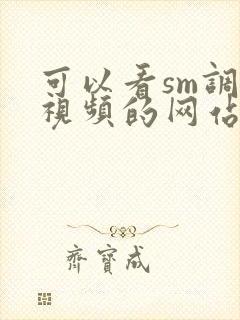 可以看sm調
視頻的网佔
齊寶成